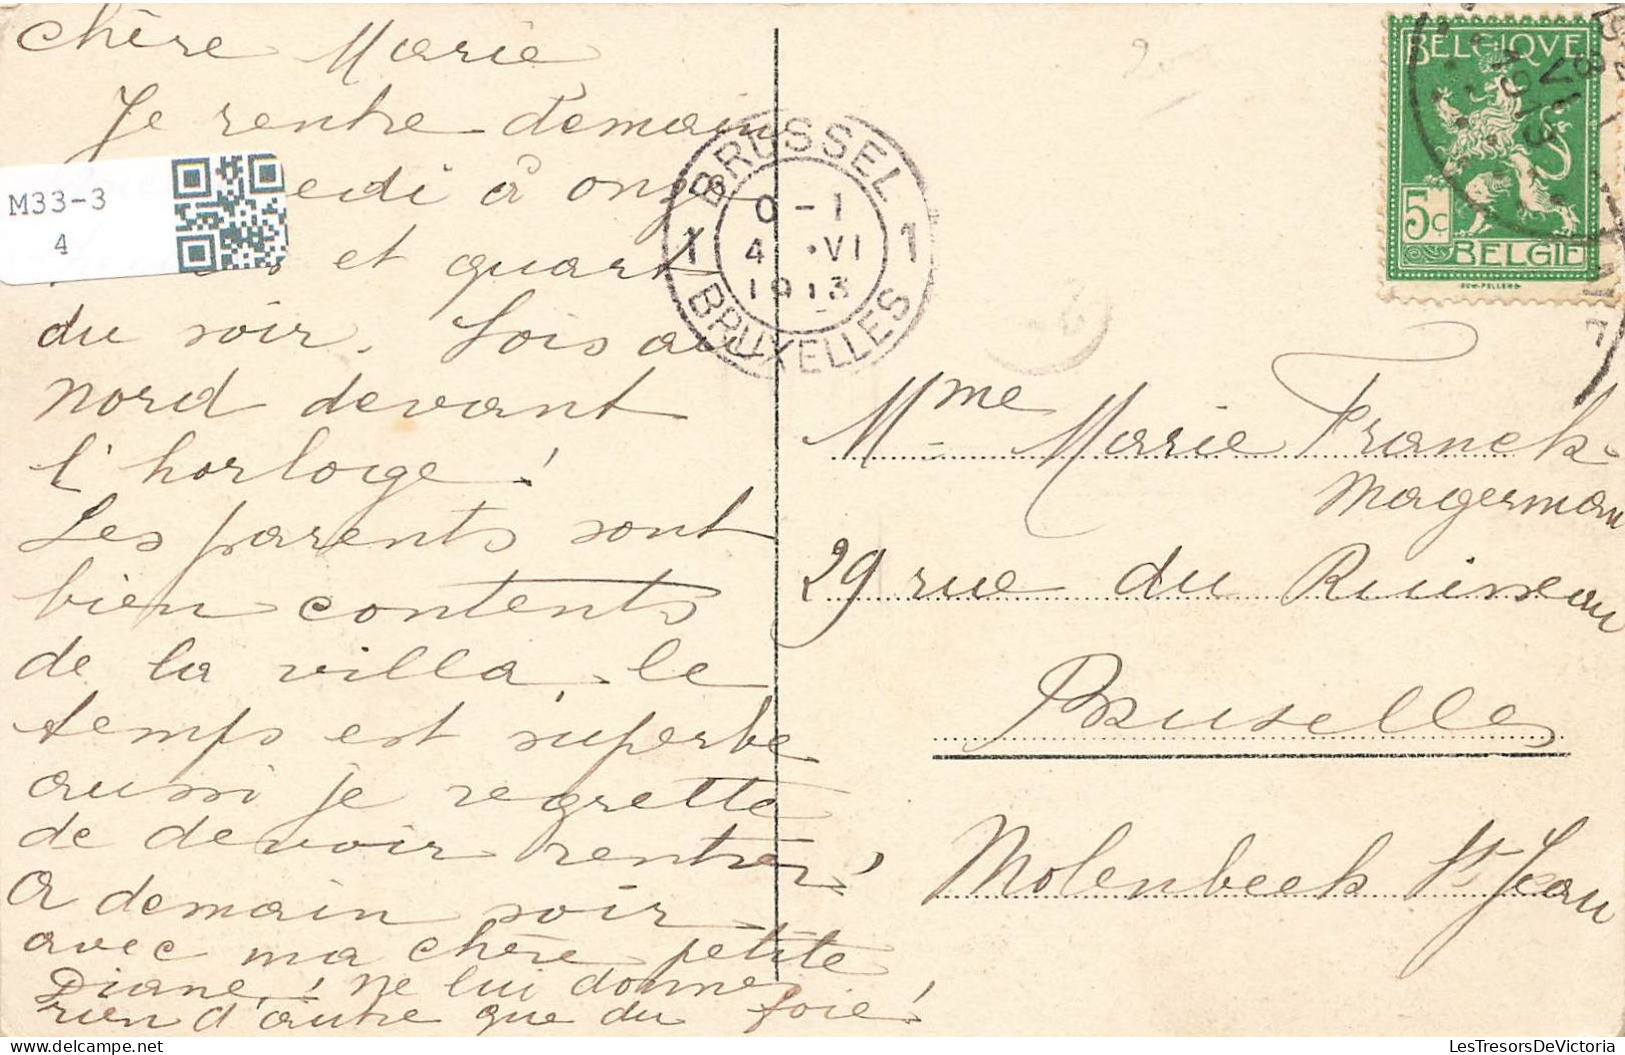 Chère Marie
Je rentre demain
edi à onze
et quart
du soir. Sois au
nord devant
l'horloge !
Les parents sont
bien contents
de la villa, le
temps est superbe
aussi je regrette
de devoir rentrer !
A demain soir
avec ma chère petite
Diane ! Ne lui donne
rien d'autre que du foie !
M33-3
4
BRUSSEL
0-1
1 4 •VI 1
1913
BRUXELLES
BELGIQUE
1913
5c
BELGIË
Mme Marie Franck-
Magerman
29 rue du Ruisseau
Bruxelles
Molenbeek St Jean
www.delcampe.net
LesTresorsDeVictoria